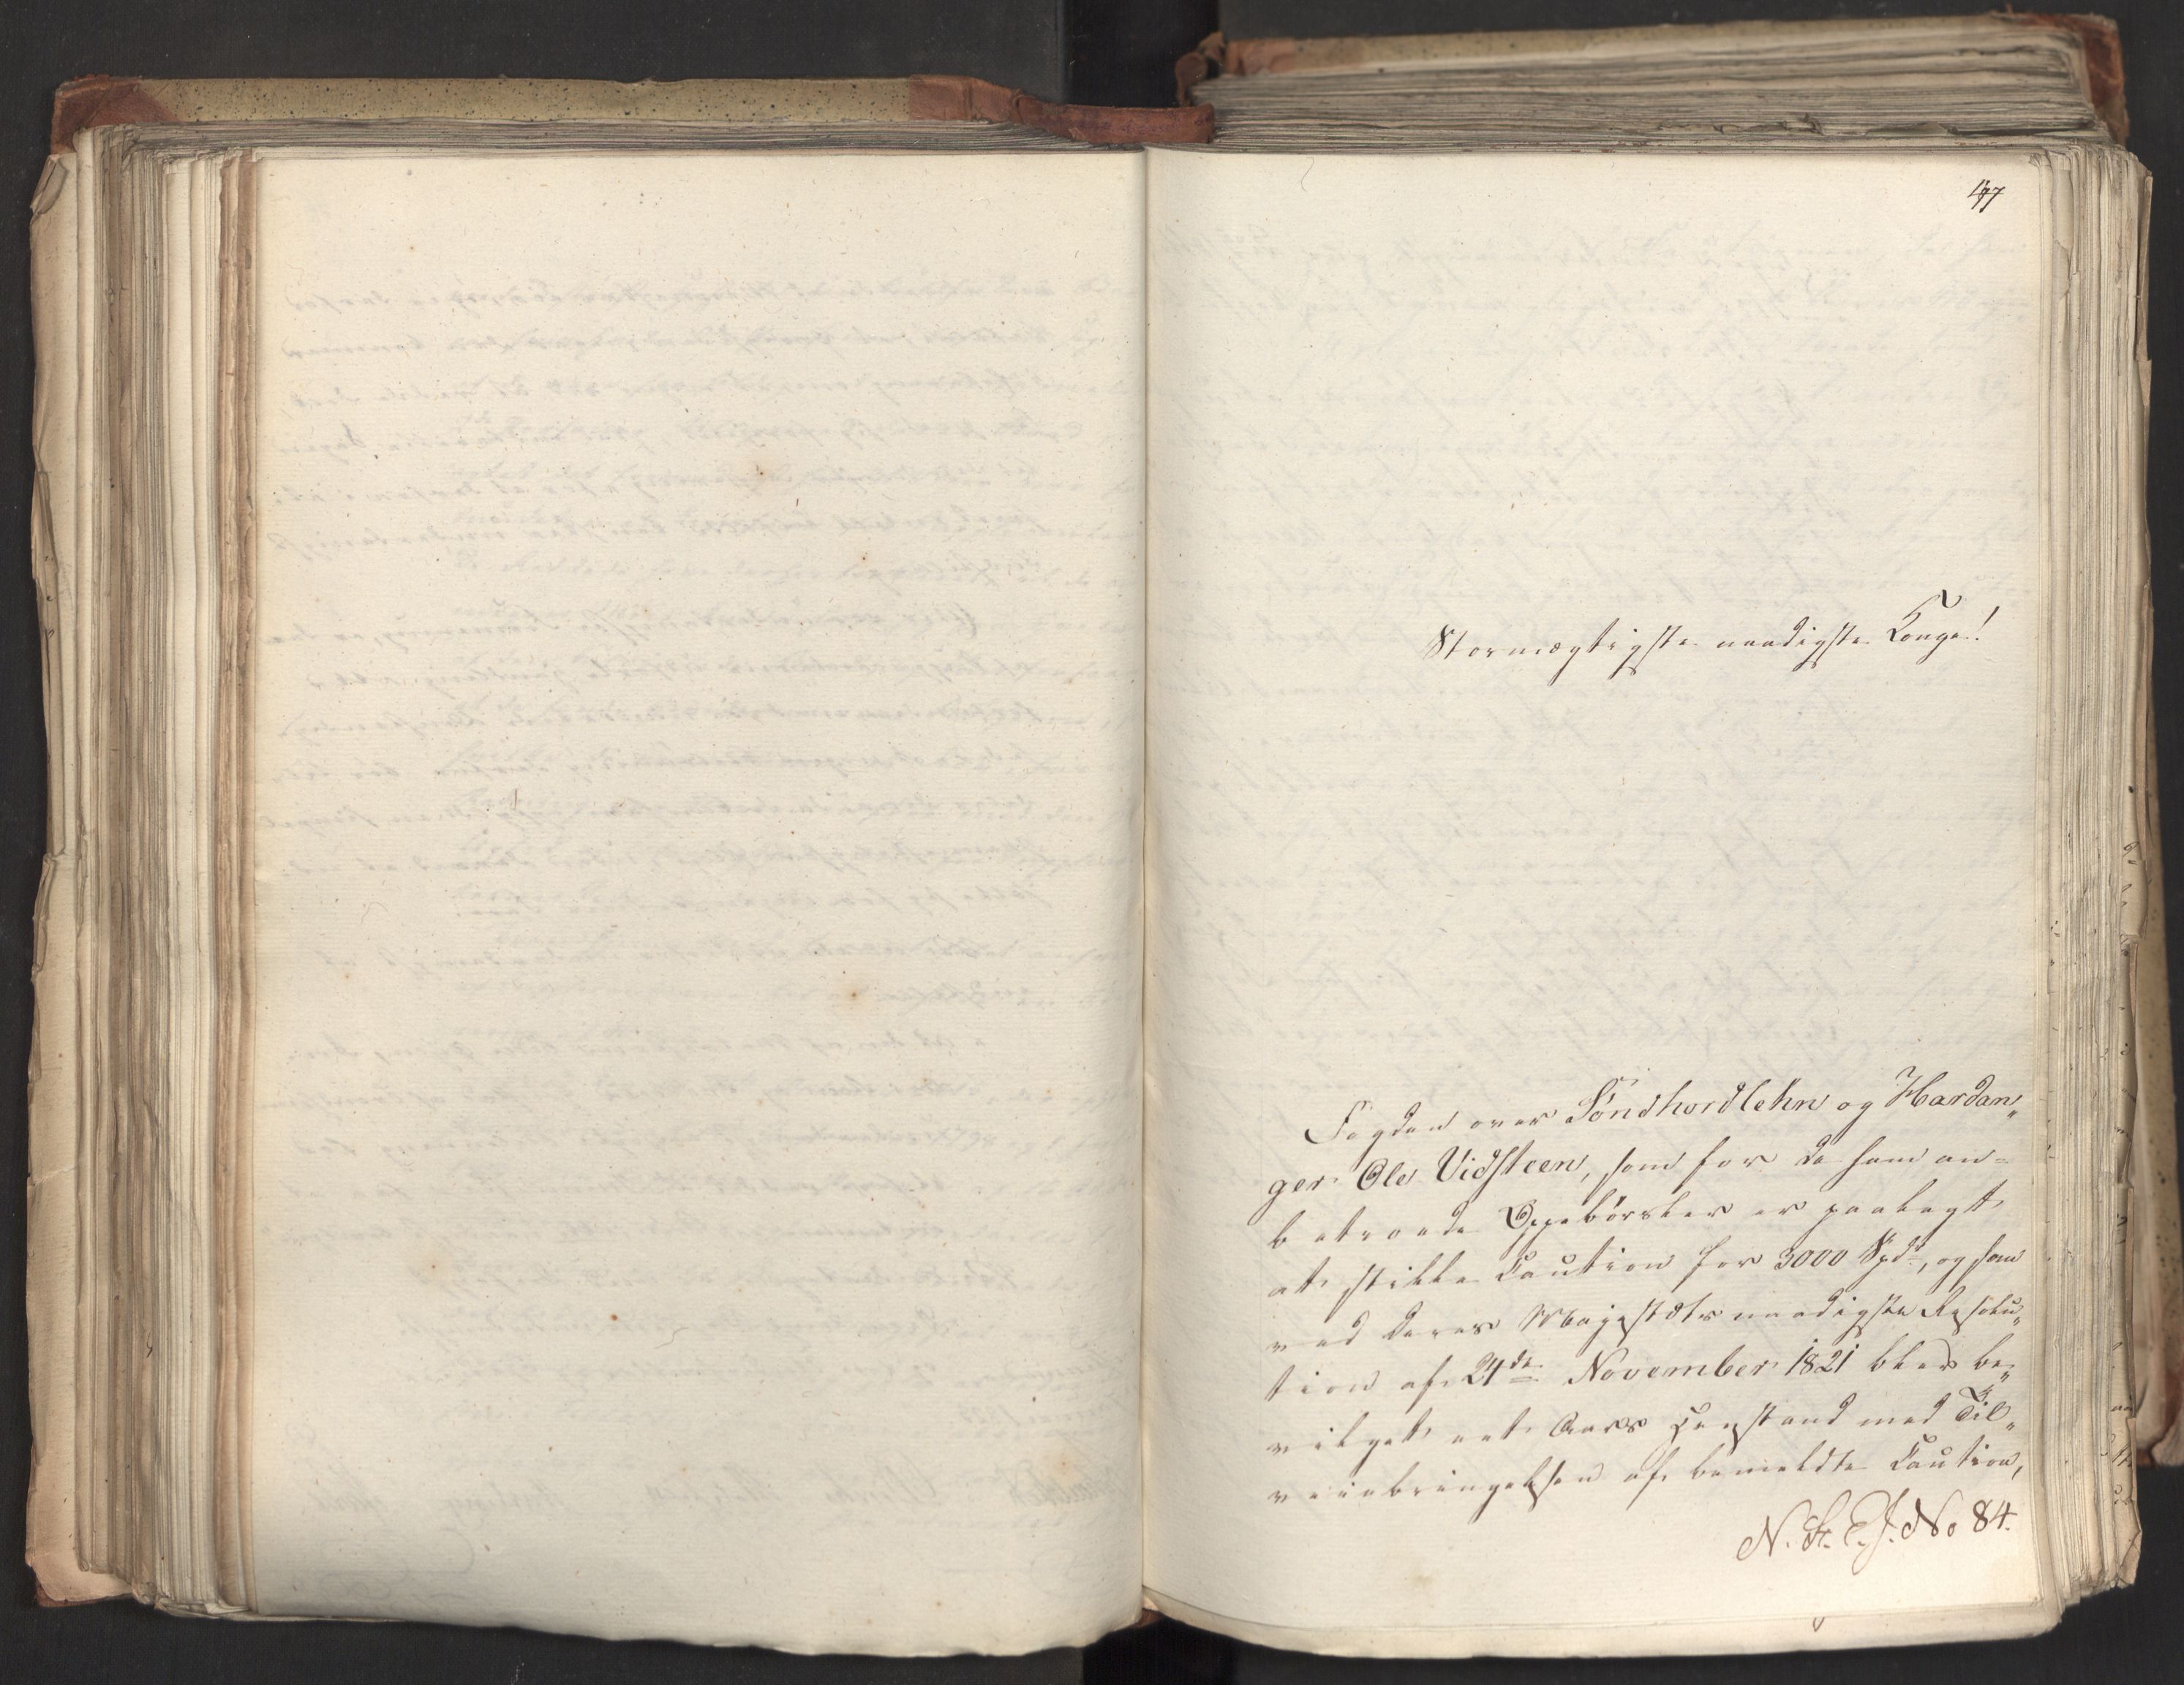 Stormægtigste naadigste Konge!
Fogden over Söndhordlehn og Hardan„
ger Ole Vidsteen, som for de ham an=
betroede Oppebörsler er paalagt
at stille Caution for 3000 Spd, og som
ved Deres Majestæts naadigste Resolu„
tion af 24de November 1821 blev be„
vilget eet Aars Henstand med Til„
veiebringelsen af bemeldte Caution,
N. No 84.